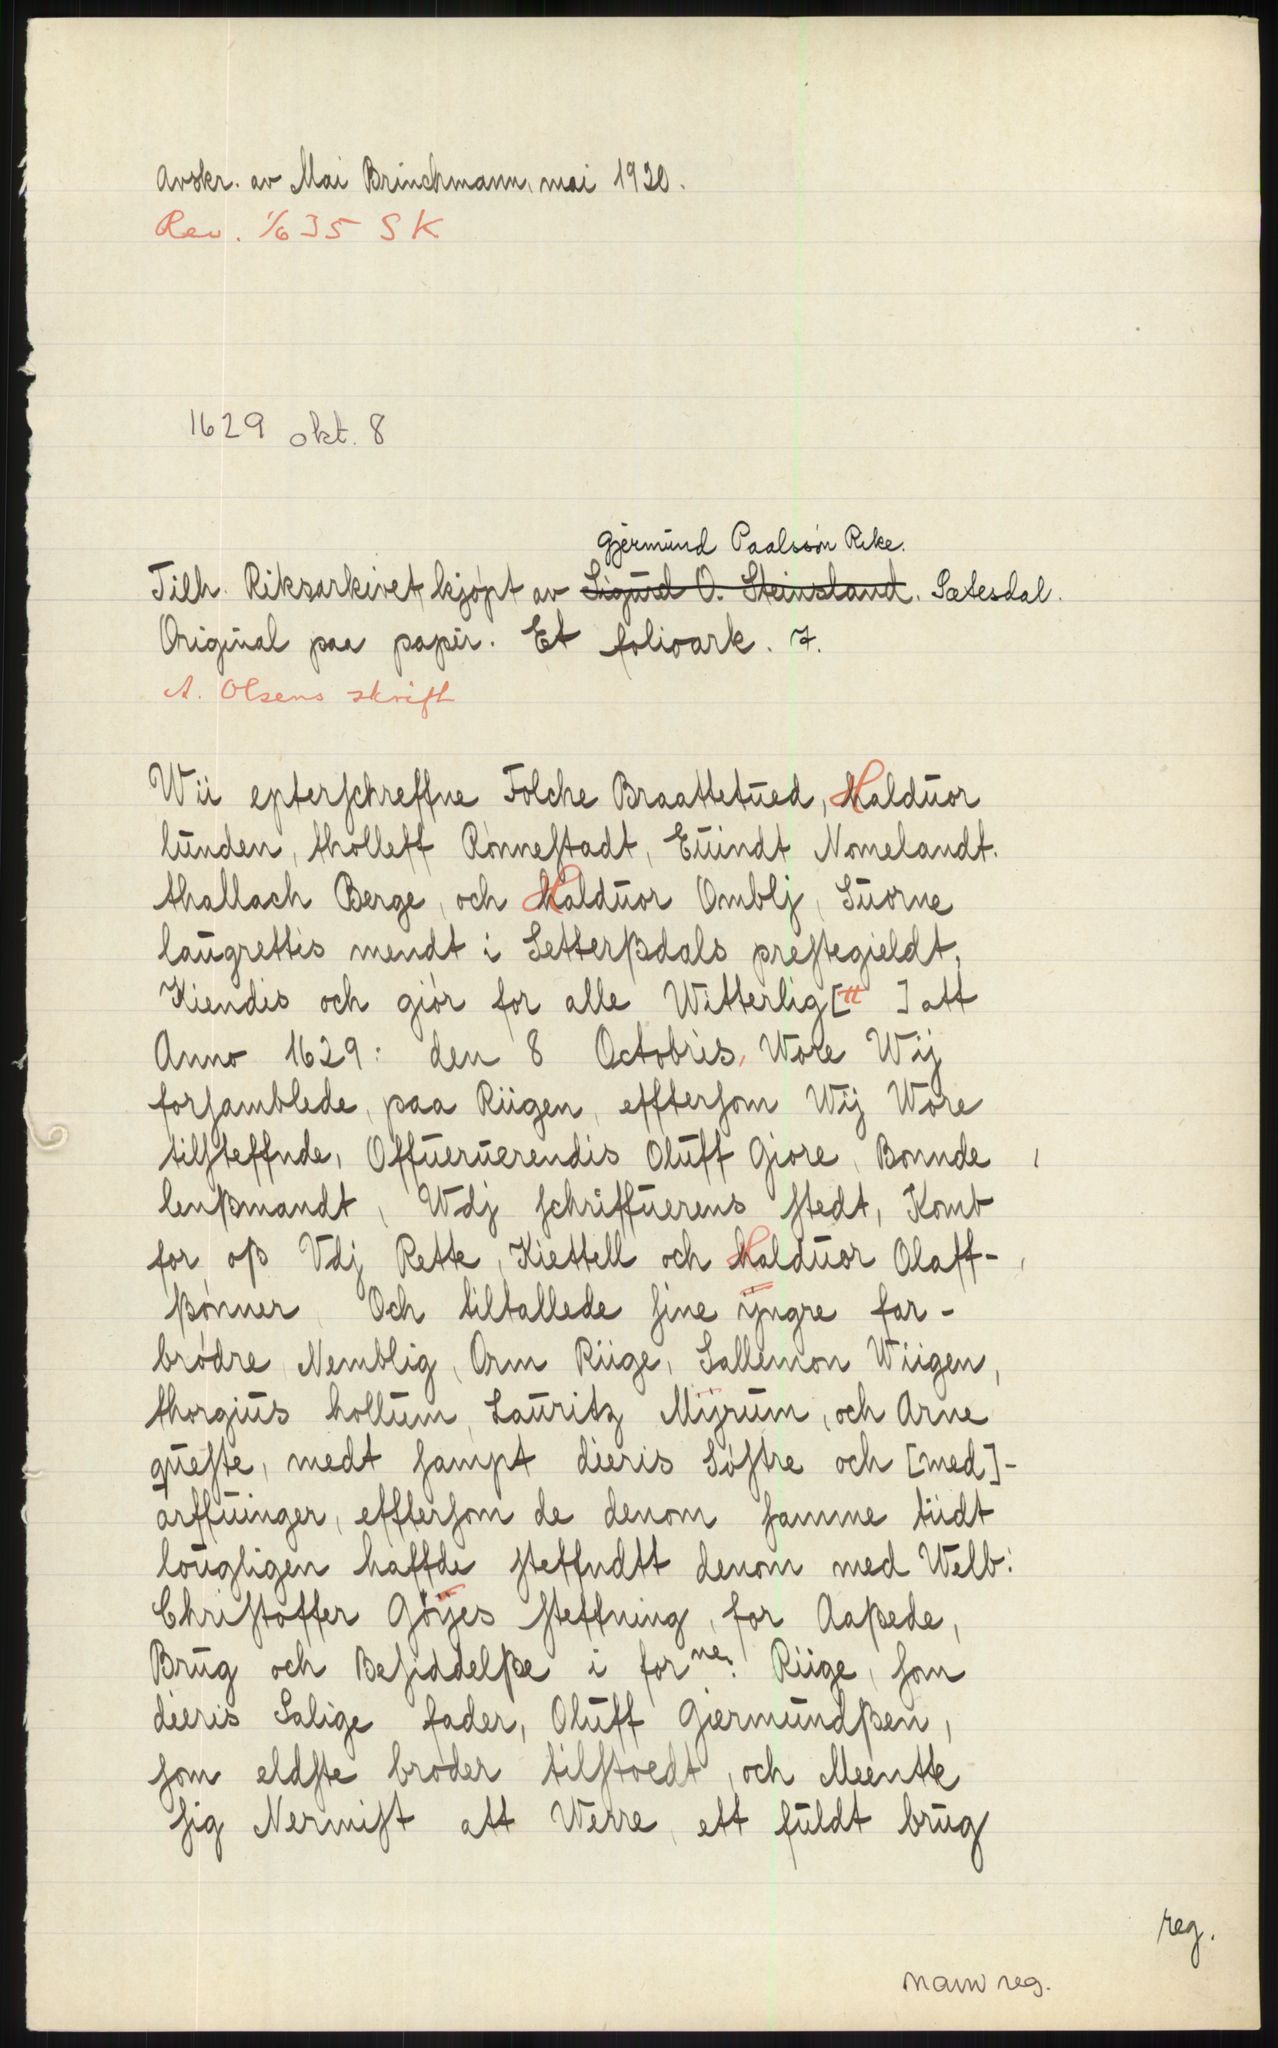 Avskr. av Mai Brinchmann, mai 1920.
Rev. 1/6 35 S K
1629 okt. 8
Gjermund Paalssøn Rike.
Tilh. Riksarkivet kjøpt av Sigurd O. Steinsland. Sætesdal.
Original paa papir. Et folioark. 7.
A. Olsens skrift
Wii epterschreffne Folche Braattetued, Halduor
lunden, tholleff Rønnestadt, Euindt Nomelandt.
thallach Berge, och Halduor Omblj, Suorne
laugrettis mendt i Setterßdals prestegieldt,
Kiendis och giør for alle Witterlig[tt ] att
Anno 1629: den 8 Octobris, Wore Wij
forsamblede, paa Riigen, efftersom Wij Wore
tilsteffnde, Offueruerendis Oluff Giøre, Bonnde
lenßmandt, Wdj schriffuerens stedt, Komb
for oß Vdj Rette, Kiettell och Halduor Olaff-
ßønner Och tiltallede sine ÿngre far-
brødre Nemblig, Orm Riige, Sallemon Wiigen,
thorgius hollum, Lauritz Mÿrum, och Arne
queste, medt sampt dieris Søstre och [med]-
arffuinger, efftersom de denom samme tiidt
lougligen haffde steffndtt denom med Welb:
Christoffer Gøÿes steffning, for Aaßede,
Brug och Besiddelße i forne: Riige, som
dieris Salige fader, Oluff Giermundßen,
som eldste broder tilstoedt, och Meentte
sig Nermist att Werre, ett fuldt brug
reg.
navnreg.